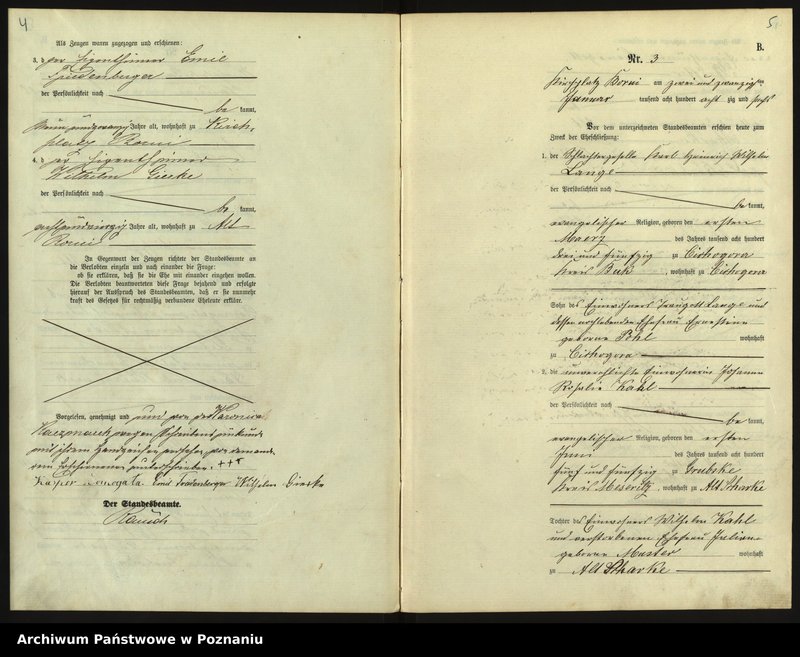 4
Als Zeugen waren zugezogen und erschienen:
3. der Eigenthümer Emil
Freudenberger
der Persönlichkeit nach
be kannt,
Jahre alt, wohnhaft zu Kirch-
platz Borui
4. der Eigenthümer
Wilhelm Gierke
der Persönlichkeit nach
be kannt,
Jahre alt, wohnhaft zu Alt
Borui
In Gegenwart der Zeugen richtete der Standesbeamte an
die Verlobten einzeln und nach einander die Frage:
ob sie erklären, daß sie die Ehe mit einander eingehen wollen.
Die Verlobten beantworteten diese Frage bejahend und erfolgte
hierauf der Ausspruch des Standesbeamten, daß er sie nunmehr
kraft des Gesetzes für rechtmäßig verbundene Eheleute erkläre.
Vorgelesen, genehmigt und und von der Veronica
Kaczmarek wegen Schreibens unkunde
mit ihrem Handzeichen versehen von den anderen
Erschienenen unterschrieben. +++
Emil Freudenberger Wilhelm Gierke
Der Standesbeamte.
5.
B.
Nr. 3
Kirchplatz Borui am zwei und zwanzigsten
Januar tausend acht hundert acht zig und sechs
Vor dem unterzeichneten Standesbeamten erschien heute zum
Zweck der Eheschließung:
1. der Schlachtergeselle Karl Heinrich Wilhelm
Lange
der Persönlichkeit nach
be kannt,
evangelischer Religion, geboren den ersten
Maerz des Jahres tausend acht hundert
drei und fünfzig zu Cichogora
Kreis Buk, wohnhaft zu Cichogora
Sohn des Einwohners Traugott Lange und
dessen Ehefrau Ernestine
geborene Pohl wohnhaft
zu Cichogora
2. die unverehelichte Einwohnerin Johanne
Rosalie Kahl
der Persönlichkeit nach
be kannt,
evangelischer Religion, geboren den ersten
Juni des Jahres tausend acht hundert
fünf und fünfzig zu Grubske
Kreis Meseritz, wohnhaft zu Alt Scharke
Tochter des Einwohners Wilhelm Kahl
und verstorbenen Ehefrau Juliane
geborene Muster wohnhaft
zu Alt Scharke
Archiwum Państwowe w Poznaniu